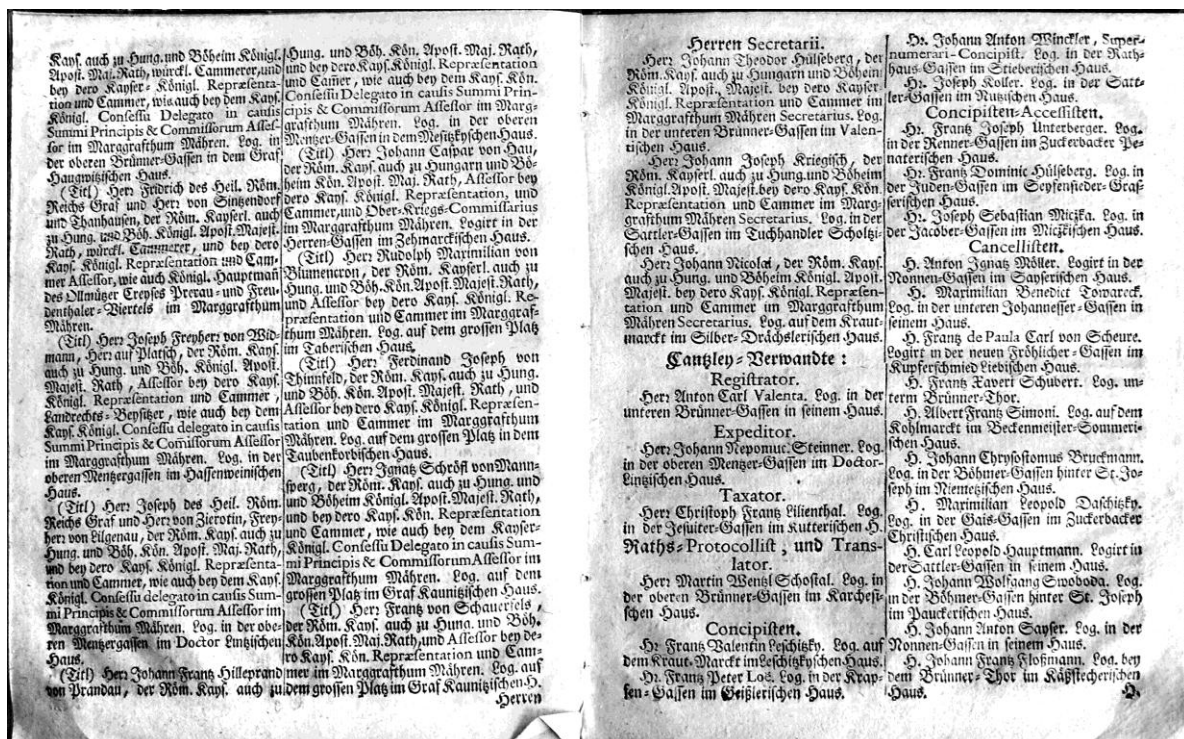 Kays. auch zu Hung. und Böheim Königl.
Apost. Maj. Rath, würckl. Cammerer, und
bey dero Kayser- Königl. Repræsenta-
tion und Cammer, wie auch bey dem Kays.
Königl. Consessu Delegato in causis
Summi Principis & Commissorum Asses-
sor im Marggrafthum Mähren. Log. in
der oberen Brünner-Gassen in dem Graf
Haugwitzischen Haus.
(Titl) Herr Fridrich des Heil. Röm.
Reichs Graf und Herr von Sintzendorf
und Thanhausen, der Röm. Kayserl. auch
zu Hung. und Böh. Königl. Apost. Majest.
Rath, würckl. Cammerer, und bey dero
Kays. Königl. Repræsentation und Cam-
mer Assessor, wie auch Königl. Hauptmañ
des Ollmützer Creyses Prerau- und Freu-
denthaler-Viertels im Marggrafthum
Mähren.
(Titl) Herr Joseph Freyherr von Wid-
mann, Herr auf Platsch, der Röm. Kays.
auch zu Hung. und Böh. Königl. Apost.
Majest. Rath, Assessor bey dero Kays.
Königl. Repræsentation und Cammer,
Landrechts-Beysitzer, wie auch bey dem
Kays. Königl. Consessu delegato in causis
Summi Principis & Com̃issorum Assessor
im Marggrafthum Mähren. Log. in der
oberen Mentzergassen im Hassenweinischen
Haus.
(Titl) Herr Joseph des Heil. Röm.
Reichs Graf und Herr von Zierotin, Frey-
herr von Lilgenau, der Röm. Kays. auch zu
Hung. und Böh. Kön. Apost. Maj. Rath,
und bey dero Kays. Königl. Repræsenta-
tion und Cammer, wie auch bey dem Kays.
Königl. Consessu delegato in causis Sum-
mi Principis & Commissorum Assessor im
Marggrafthum Mähren. Log. in der obe-
ren Mentzergassen im Doctor Lintzischen
Haus.
(Titl) Herr Johann Frantz Hilleprand
von Prandau, der Röm. Kays. auch zu
Hung. und Böh. Kön. Apost. Maj. Rath,
und bey dero Kays. Königl. Repræsentation
und Cam̃er, wie auch bey dem Kays. Kön.
Consessu Delegato in causis Summi Prin-
cipis & Commissorum Assessor im Marg-
grafthum Mähren. Log. in der oberen
Mentzer-Gassen in dem Mesitzkyschen Haus.
(Titl) Herr Johann Caspar von Hau,
der Röm. Kays. auch zu Hungarn und Bö-
heim Kön. Apost. Maj. Rath, Assessor bey
dero Kays. Königl. Repræsentation, und
Cammer, und Ober-Kriegs-Commissarius
im Marggrafthum Mähren. Logirt in der
Herren-Gassen im Zehmarckischen Haus.
(Titl) Herr Rudolph Maximilian von
Blumencron, der Röm. Kayserl. auch zu
Hung. und Böh. Kön. Apost. Majest. Rath,
und Assessor bey dero Kays. Königl. Re-
præsentation und Cammer im Marggraf-
thum Mähren. Log. auf dem grossen Platz
im Taberischen Haus.
(Titl) Herr Ferdinand Joseph von
Thinnfeld, der Röm. Kays. auch zu Hung.
und Böh. Kön. Apost. Majest. Rath, und
Assessor bey dero Kays. Königl. Repræsen-
tation und Cammer im Marggrafthum
Mähren. Log. auf dem grossen Platz in dem
Taubenkorbischen Haus.
(Titl) Herr Ignatz Schröfl von Mann-
sperg, der Röm. Kays. auch zu Hung. und
und Böheim Königl. Apost. Majest. Rath,
und bey dero Kays. Kön. Repræsentation
und Cammer, wie auch bey dem Kayser-
Königl. Consessu Delegato in causis Sum-
mi Principis & Commissorum Assessor im
Marggrafthum Mähren. Log. auf dem
grossen Platz im Graf Kaunitzischen Haus.
(Titl) Herr Frantz von Schauerfels,
der Röm. Kays. auch zu Hung. und Böh.
Kön. Apost. Maj. Rath, und Assessor bey de-
ro Kays. Kön. Repræsentation und Cam-
mer im Marggrafthum Mähren. Log. auf
dem grossen Platz im Graf Kaunitzischen H.
Herren
Herren Secretarii.
Herr Johann Theodor Hülseberg, der
Röm. Kays. auch zu Hungarn und Böheim
Königl. Apost. Majest. bey dero Kayser
Königl. Repræsentation und Cammer im
Marggrafthum Mähren Secretarius. Log.
in der unteren Brünner-Gassen im Valen-
tischen Haus.
Herr Johann Joseph Kriegisch, der
Röm. Kayserl. auch zu Hung. und Böheim
Königl. Apost. Majest. bey dero Kays. Kön.
Repræsentation und Cammer im Marg-
grafthum Mähren Secretarius. Log. in der
Sattler-Gassen im Tuchhandler Scholtzi-
schen Haus.
Herr Johann Nicolai, der Röm. Kays.
auch zu Hung. und Böheim Königl. Apost.
Majest. bey dero Kays. Königl. Repræsen-
tation und Cammer im Marggrafthum
Mähren Secretarius. Log. auf dem Kraut-
marckt im Silber-Drächslerischen Haus.
Cantzley-Verwandte:
Registrator.
Herr Anton Carl Valenta. Log. in der
unteren Brünner-Gassen in seinem Haus.
Expeditor.
Herr Johann Nepomuc. Steinner. Log.
in der oberen Mentzer-Gassen im Doctor-
Lintzischen Haus.
Taxator.
Herr Christoph Frantz Lilienthal. Log.
in der Jesuiter-Gassen im Kutterischen H.
Raths-Protocollist, und Trans-
lator.
Herr Martin Wentzl Schostal. Log. in
der oberen Brünner-Gassen im Karchesi-
schen Haus.
Concipisten.
Hr. Frantz Valentin Leschitzky. Log. auf
dem Kraut-Marckt im Leschitzkyschen Haus.
Hr. Frantz Peter Loë. Log. in der Krap-
fen-Gassen im Geißlerischen Haus.
Hr. Johann Anton Winckler, Super-
numerari-Concipist. Log. in der Rath-
haus-Gassen im Stieberischen Haus.
Hr. Joseph Koller. Log. in der Satt-
ler-Gassen im Nutzischen Haus.
Concipisten-Accessisten.
Hr. Frantz Joseph Unterberger. Log.
in der Renner-Gassen im Zuckerbacker Pe-
naterischen Haus.
Hr. Frantz Dominic Hülseberg. Log. in
der Juden-Gassen im Seyfensieder-Graß-
serischen Haus.
Hr. Joseph Sebastian Miczka. Log. in
der Jacober-Gassen im Miczkischen Haus.
Cancellisten.
H. Anton Ignatz Möller. Logirt in der
Nonnen-Gassen im Sayserischen Haus.
H. Maximilian Benedict Towareck.
Log. in der unteren Johannesser-Gassen in
seinem Haus.
H. Frantz de Paula Carl von Scheure.
Logirt in der neuen Fröhlicher-Gassen im
Kupferschmied Liebischen Haus.
H. Frantz Xaveri Schubert. Log. un-
term Brünner-Thor.
H. Albert Frantz Simoni. Log. auf dem
Kohlmarckt im Beckenmeister-Sommeri-
schen Haus.
H. Johann Chrysostomus Bruckmann.
Log. in der Böhmer-Gassen hinter St. Jo-
seph im Niemetzischen Haus.
H. Maximilian Leopold Daschitzky.
Log. in der Gais-Gassen im Zuckerbacker
Christischen Haus.
H. Carl Leopold Hauptmann. Logirt in
der Sattler-Gassen in seinem Haus.
H. Johann Wolfgang Swoboda. Log.
in der Böhmer-Gassen hinter St. Joseph
im Pauckerischen Haus.
H. Johann Anton Sayser. Log. in der
Nonnen-Gassen in seinem Haus.
H. Johann Frantz Floßmann. Log. bey
dem Brünner-Thor im Käßstecherischen
Haus.
H.